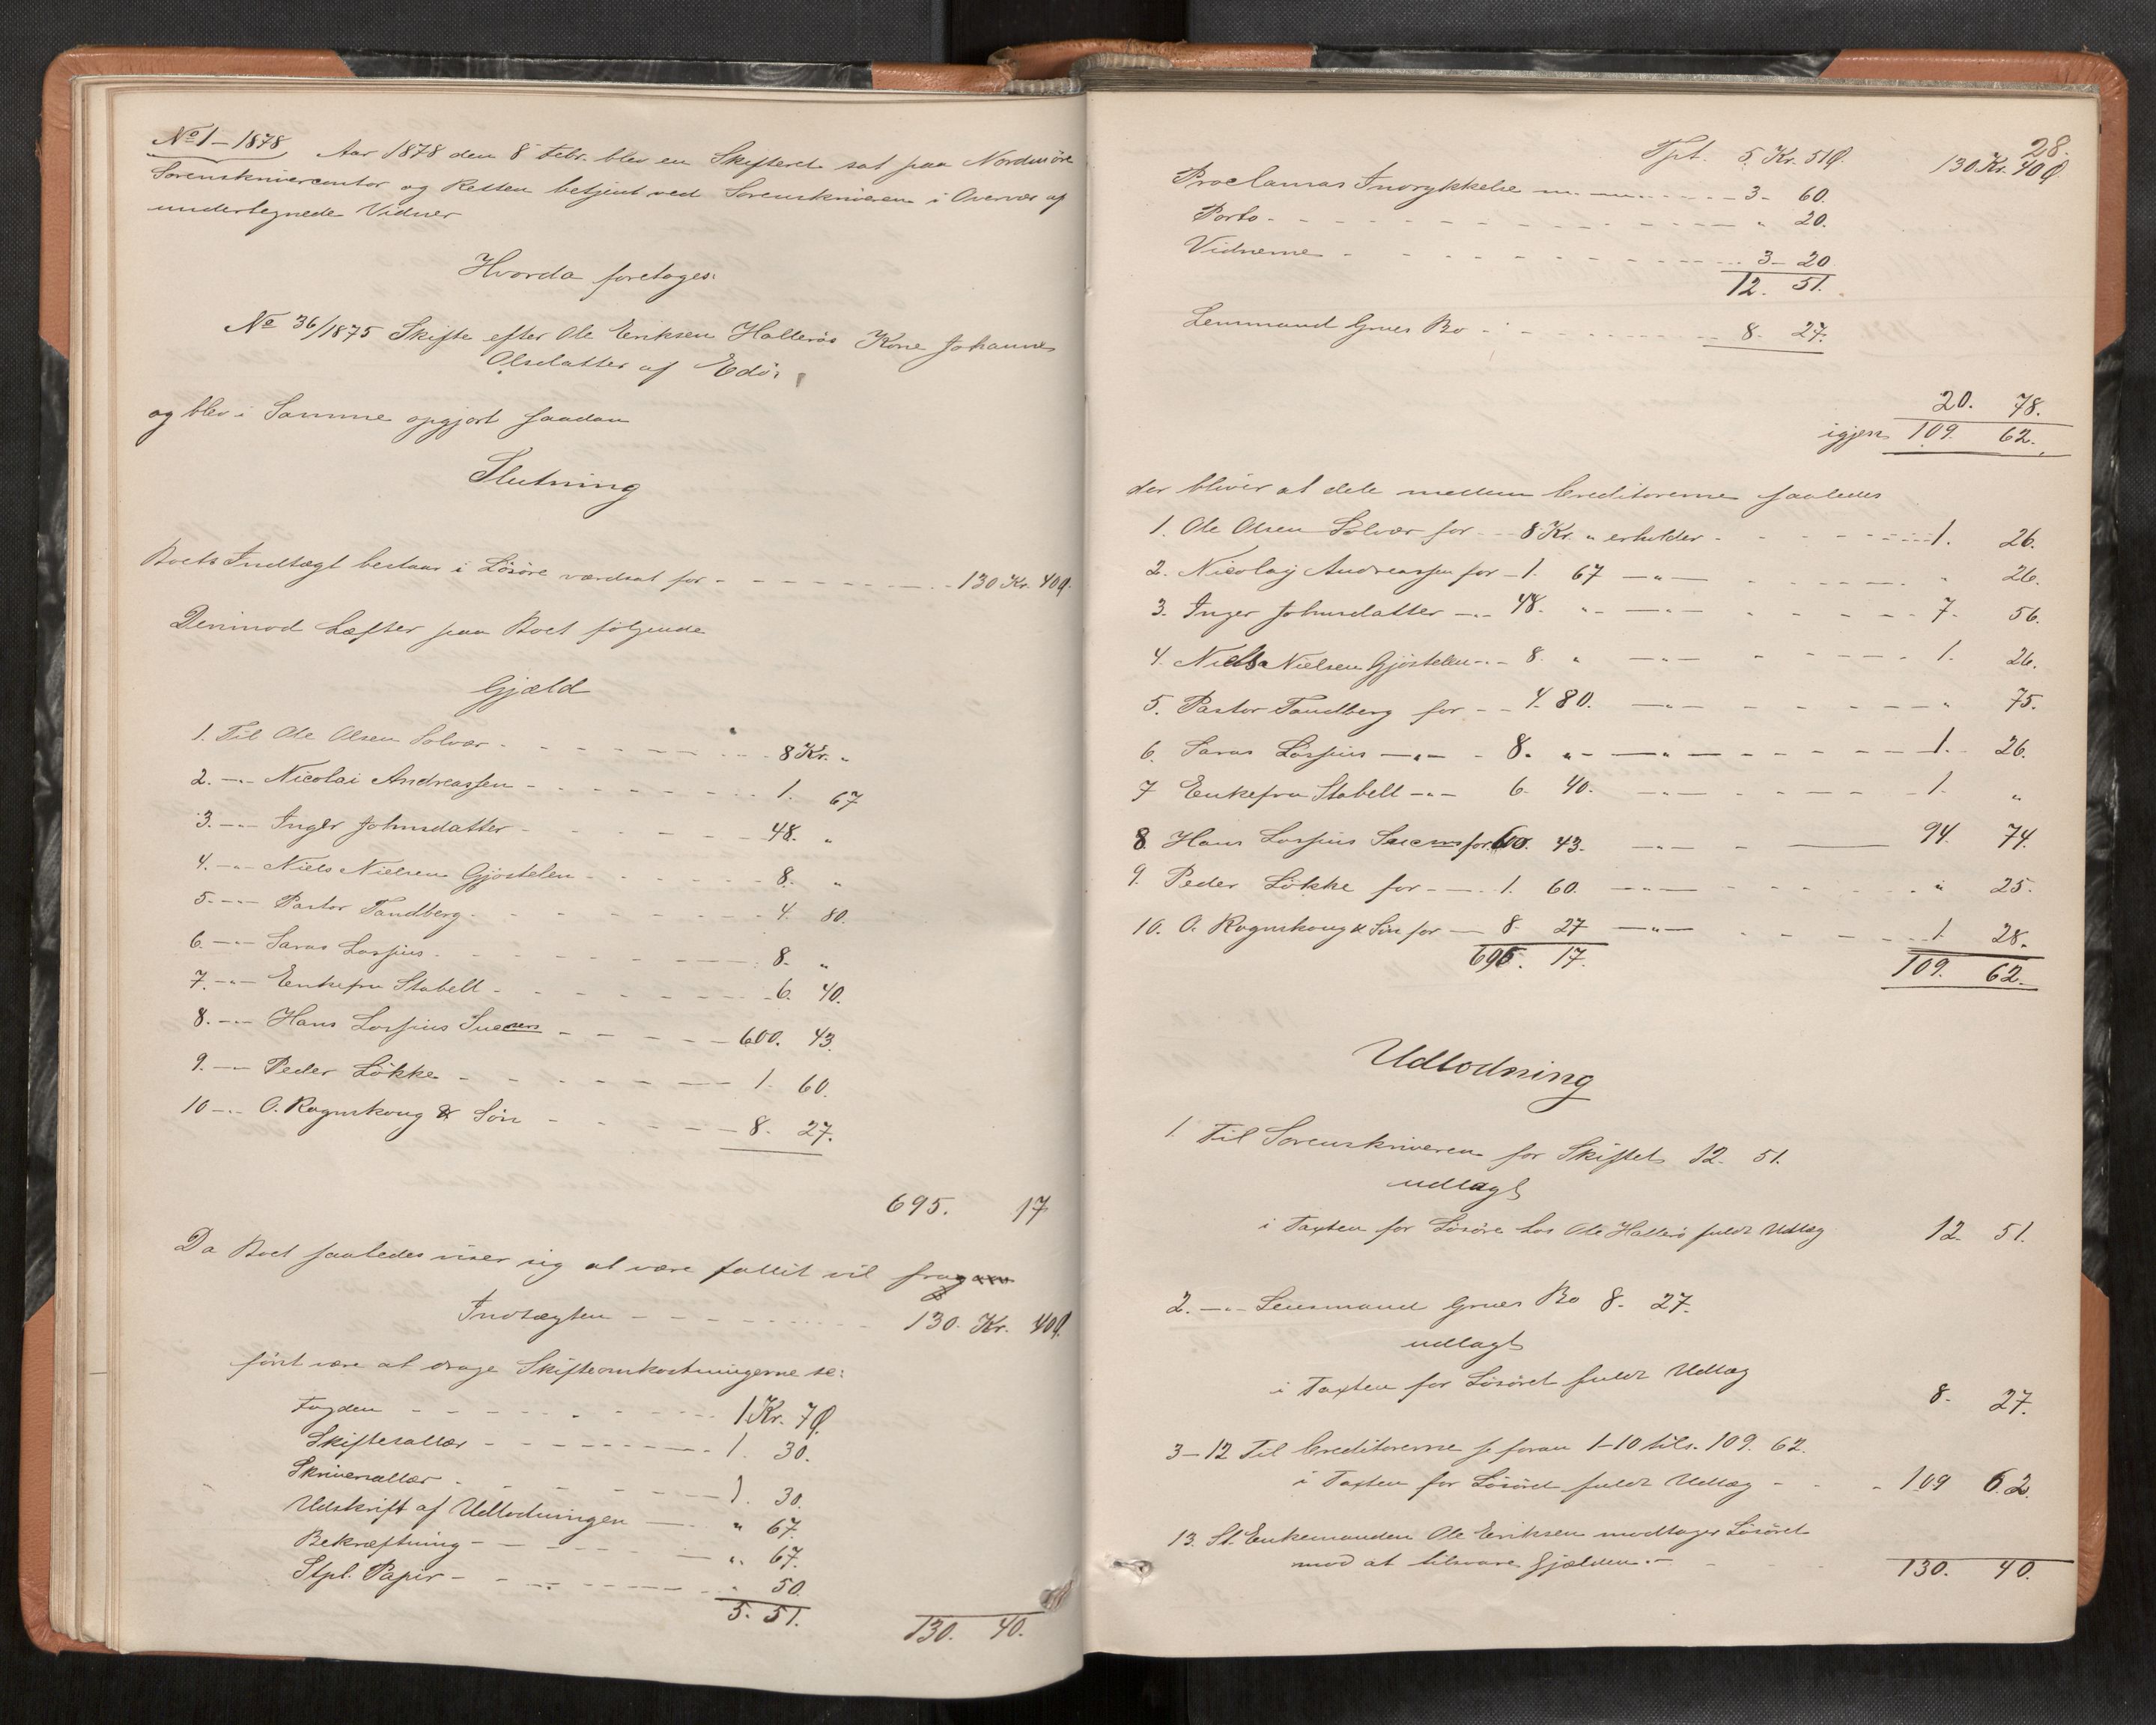 No 1 – 1878 Aar 1878 den 8 Febr. blev en Skifteret sat paa Nordmöre
Sorenskrivercontor og Retten betjent ved Sorenskriveren i Overvær af
undertegnede Vidner
Hvorda foretoges:
No 36/1875 Skifte efter Ole Eriksen Hallerös Kone Johanna
Olsdatter af Edö.
og blev i Samme opgjort saadan
Slutning
Boets Indtægt bestaar i Lösöre værdsat for - - - 130 Kr. 40 Ø.
Derimod hæfter paa Boet fölgende
Gjæld
1. Til Ole Olsen Solvær - - - 8 Kr. "
2. —"— Nicolai Andreassen - - - 1. 67
3. —"— Inger Johnsdatter - - - 48. "
4. —"— Niels Nielsen Gjöstelen - - - 8. "
5. —"— Pastor Tandberg - - - 4. 80.
6. —"— Saras Lossius - - - 8. "
7. —"— Enkefru Stabell - - - 6. 40.
8. —"— Hans Lossius Succrs - - - 600. 43.
9. —"— Peder Lökke - - - 1. 60.
10 —"— O. Rognskoug & Sön - - - 8. 27.
695. 17
Da Boet saaledes viser sig at være fallit vil fra
Indtægten - - - 130. Kr. 40 Ø.
först være at drage Skifteomkostningerne se:
Fogden - - - 1 Kr. 7 Ø.
Skiftesallær - - - 1. 30.
Skriversallær - - - 1. 30.
Udskrift af Udlodningen — " 67.
Bekræftning - - - " 67.
Stpl. Papir - - - " 50.
5. 51. 130. 40.
28.
Tpt. 5 Kr. 51 Ø. 130 Kr. 40 Ø.
Proclamas Indrykkelse m. m. - - - 3 - 60.
Porto - - - " 20.
Vidnerne - - - 3 – 20
12. 51.
Lensmand Grues Bo - - - 8. 27.
20. 78.
igjen 109. 62.
der bliver at dele mellem Creditorerne saaledes
1. Ole Olsen Solvær for - - 8 Kr. " erholder - - - 1. 26.
2. Nicolaij Andreassen for - 1. 67 —"— - - - " 26.
3. Inger Johnsdatter —"— 48. " —"— - - - 7. 56.
4. Niels Nielsen Gjöstelen —"— 8. " —"— - - - 1. 26.
5. Pastor Tandberg for - - 4. 80. —"— - - - " 75.
6. Saras Lossius —"— 8. " —"— - - - 1. 26.
7 Enkefru Stabell —"— 6. 40. —"— - - - 1. "
8. Hans Lossius Succrs for 600. 43. —"— - — 94. 74.
9. Peder Lökke for - - 1. 60. —"— - - - " 25.
10. O. Rognskoug & Sön for — 8. 27 —"— - - - 1. 28.
695. 17. 109. 62.
Udlodning
1. Til Sorenskriveren for Skiftet 12. 51.
udlagt
i Taxten for Lösöre hos Ole Hallerö fuldt Udlæg 12. 51.
2. —"— Lensmand Grues Bo 8. 27.
udlagt
i Taxten for Lösöret fuldt Udlæg 8. 27.
3–12 Til Creditorerne se foran 1–10 tils. 109. 62.
i Taxten for Lösöret fuldt Udlæg - - - 109 62.
13. St. Enkemanden Ole Eriksen modtager Lösöret
mod at tilsvare Gjælden.— 130. 40.